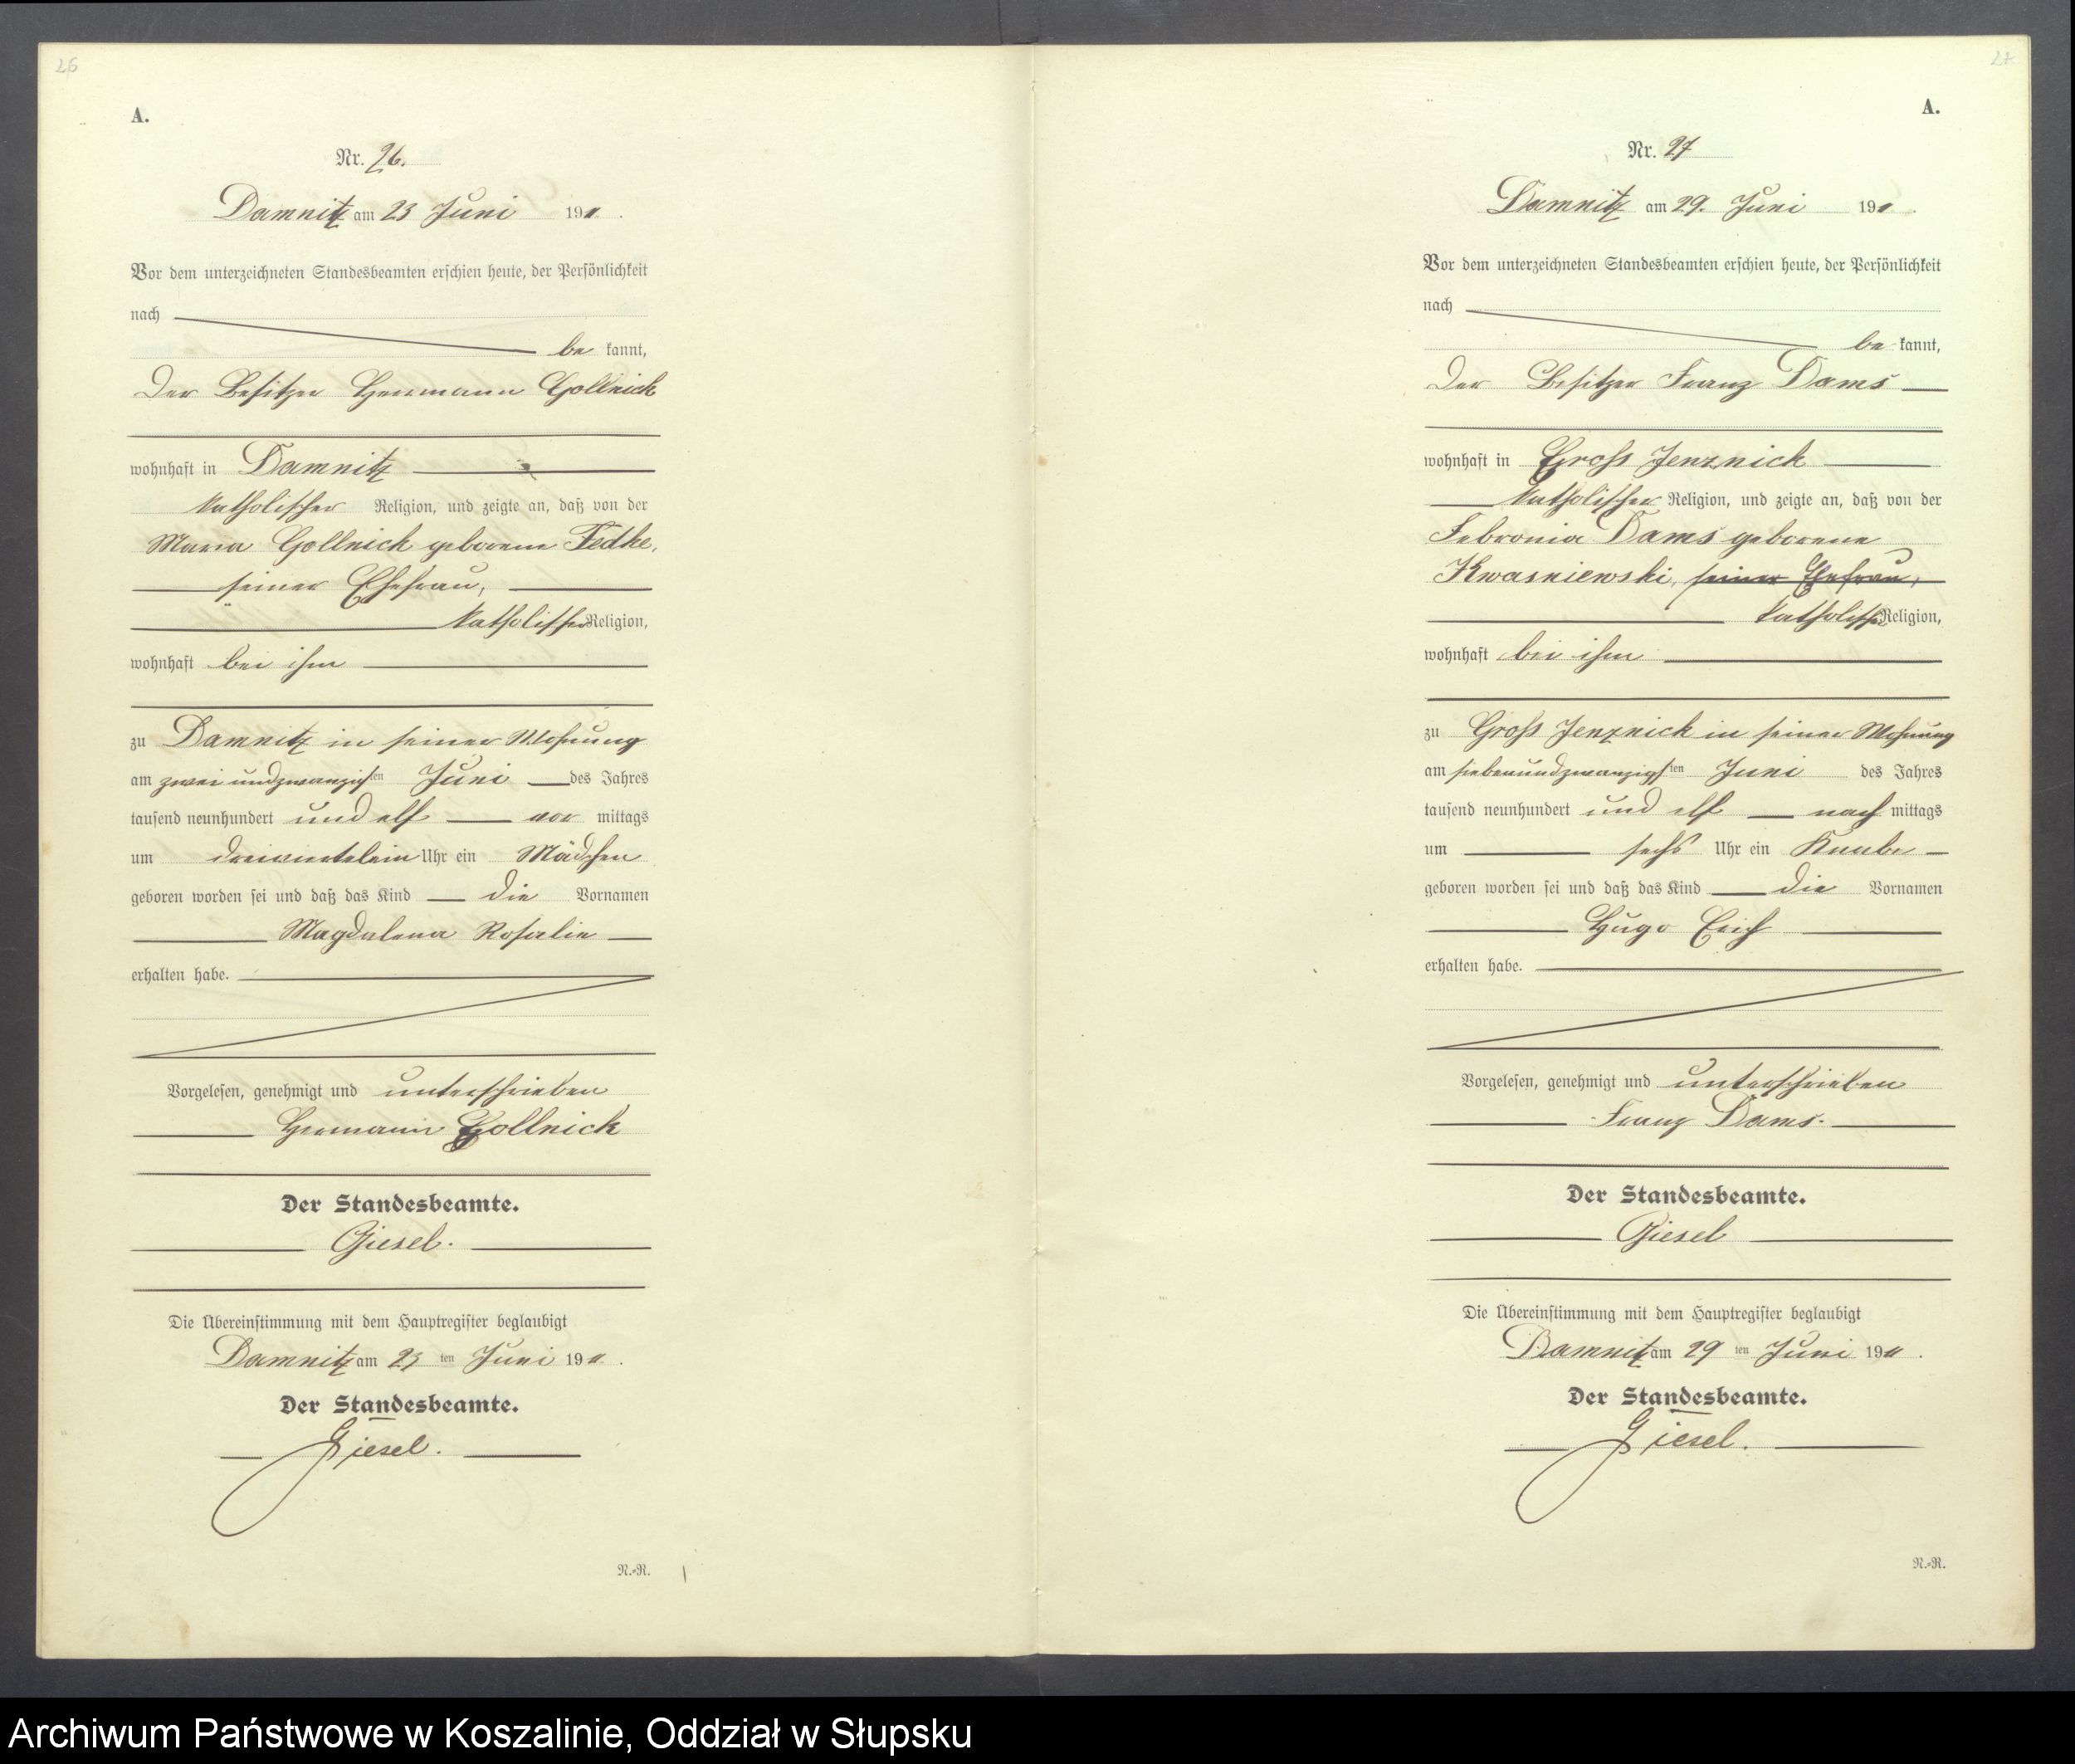 26
A.
Nr. 26.
Damnitz am 23 Juni 1911.
Vor dem unterzeichneten Standesbeamten erschien heute, der Persönlichkeit
nach
be kannt,
der Besitzer Hermann Gollnick
wohnhaft in Damnitz
katholischer Religion, und zeigte an, daß von der
Maria Gollnick geborene Fedke,
seiner Ehefrau,
katholischer Religion,
wohnhaft bei ihm
zu Damnitz in seiner Wohnung
am zwei und zwanzigsten Juni des Jahres
tausend neunhundert und elf vor mittags
um dreiviertelein Uhr ein Mädchen
geboren worden sei und daß das Kind die Vornamen
Magdalena Rosalie
erhalten habe.
Vorgelesen, genehmigt und unterschrieben
Hermann Gollnick
Der Standesbeamte.
Giesel.
Die Übereinstimmung mit dem Hauptregister beglaubigt
Damnitz am 23 ten Juni 1911.
Der Standesbeamte.
Giesel.
N.=R.
27
A.
Nr. 27
Damnitz am 29. Juni 1911.
Vor dem unterzeichneten Standesbeamten erschien heute, der Persönlichkeit
nach
be kannt,
der Besitzer Franz Dams
wohnhaft in Gross Jenznick
katholischer Religion, und zeigte an, daß von der
Febronia Dams geborene
Kwasniewski, seiner Ehefrau,
katholischer Religion,
wohnhaft bei ihm
zu Gross Jenznick in seiner Wohnung
am siebenundzwanzigsten Juni des Jahres
tausend neunhundert und elf nach mittags
um sechs Uhr ein Knabe
geboren worden sei und daß das Kind die Vornamen
Hugo Erich
erhalten habe.
Vorgelesen, genehmigt und unterschrieben
Franz Dams.
Der Standesbeamte.
Giesel
Die Übereinstimmung mit dem Hauptregister beglaubigt
Damnitz am 29 ten Juni 1911.
Der Standesbeamte.
Giesel.
N.=R.
Archiwum Państwowe w Koszalinie, Oddział w Słupsku